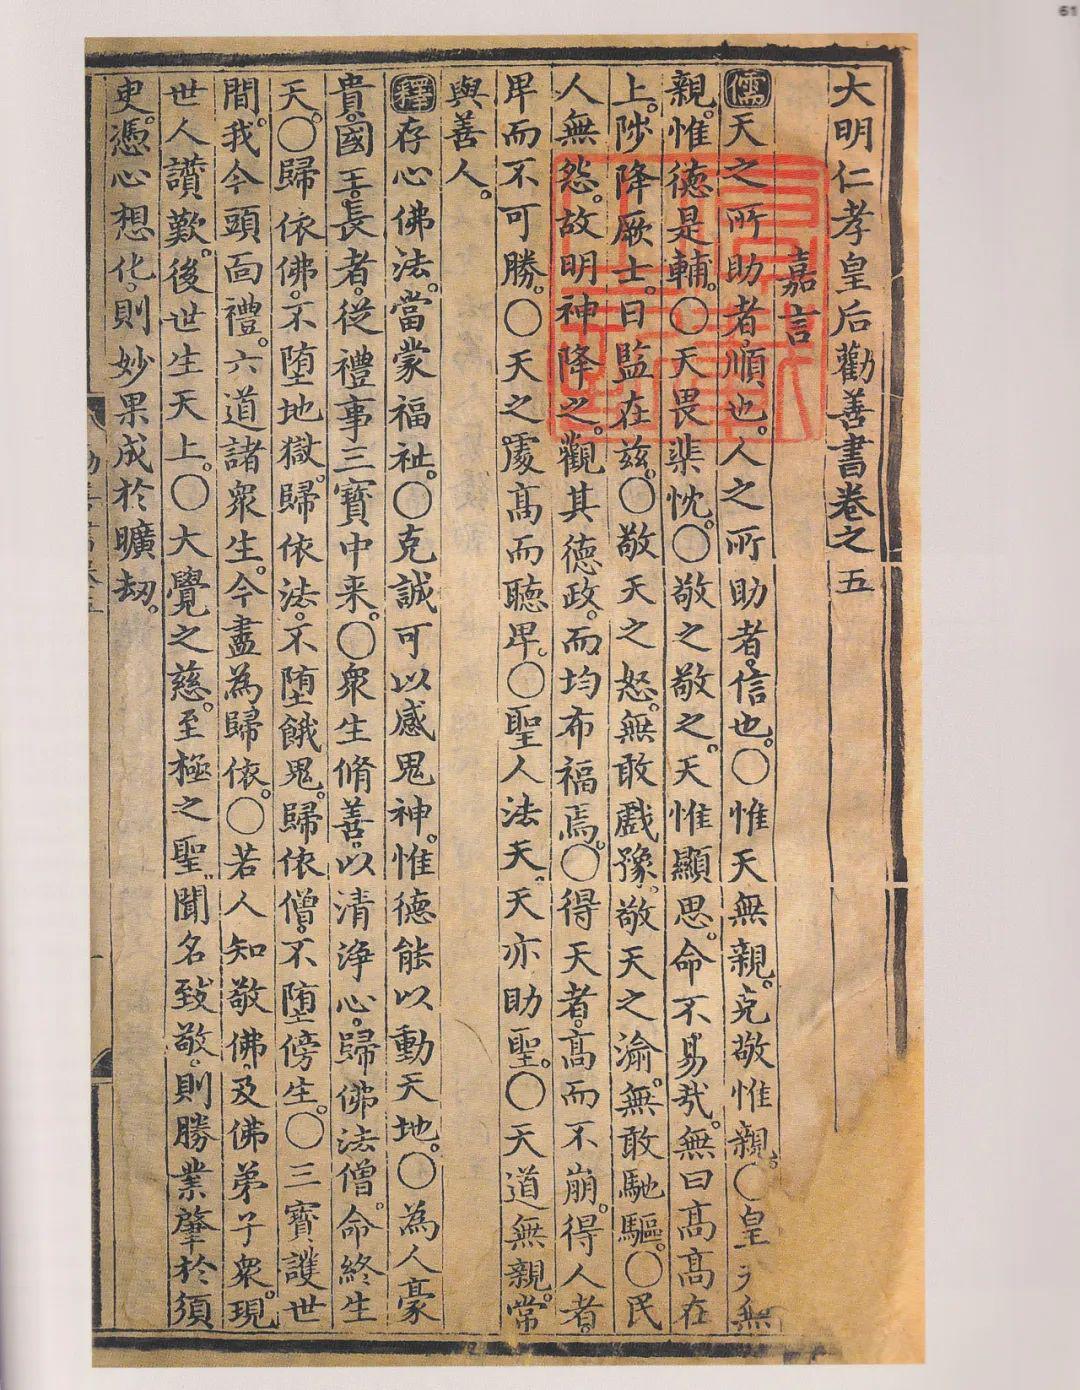 61
大明仁孝皇后勸善書卷之五
嘉言
儒天之所助者順也。人之所助者。信也。〇惟天無親。克敬惟親。〇皇天無
親。惟德是輔。〇天畏棐忱。〇敬之敬之。天惟顯思。命不易哉。無曰高高在
上。陟降厥士。日監在玆。〇敬天之怒。無敢戲豫。敬天之渝。無敢馳驅。〇民
人無怨。故明神降之。觀其德政。而均布福焉。〇得天者。高而不崩。得人者。
卑而不可勝。〇天之處高而聽卑。〇聖人法天。天亦助聖。〇天道無親。常
與善人。
釋存心佛法。當蒙福祉。〇克誠可以感鬼神。惟德能以動天地。〇為人豪
貴。國王。長者。從禮事三寶中来。〇衆生脩善。以清淨心。歸佛法僧。命終生
天。〇歸依佛。不堕地獄。歸依法。不堕餓鬼。歸依僧。不堕傍生。〇三寶護世
間。我今頭面禮。六道諸衆生。今盡為歸依。〇若人知敬佛。及佛弟子衆。現
世人讚歎。後世生天上。〇大覺之慈。至極之聖。聞名致敬。則勝業肇於須
臾。憑心想化。則妙果成於曠刼。